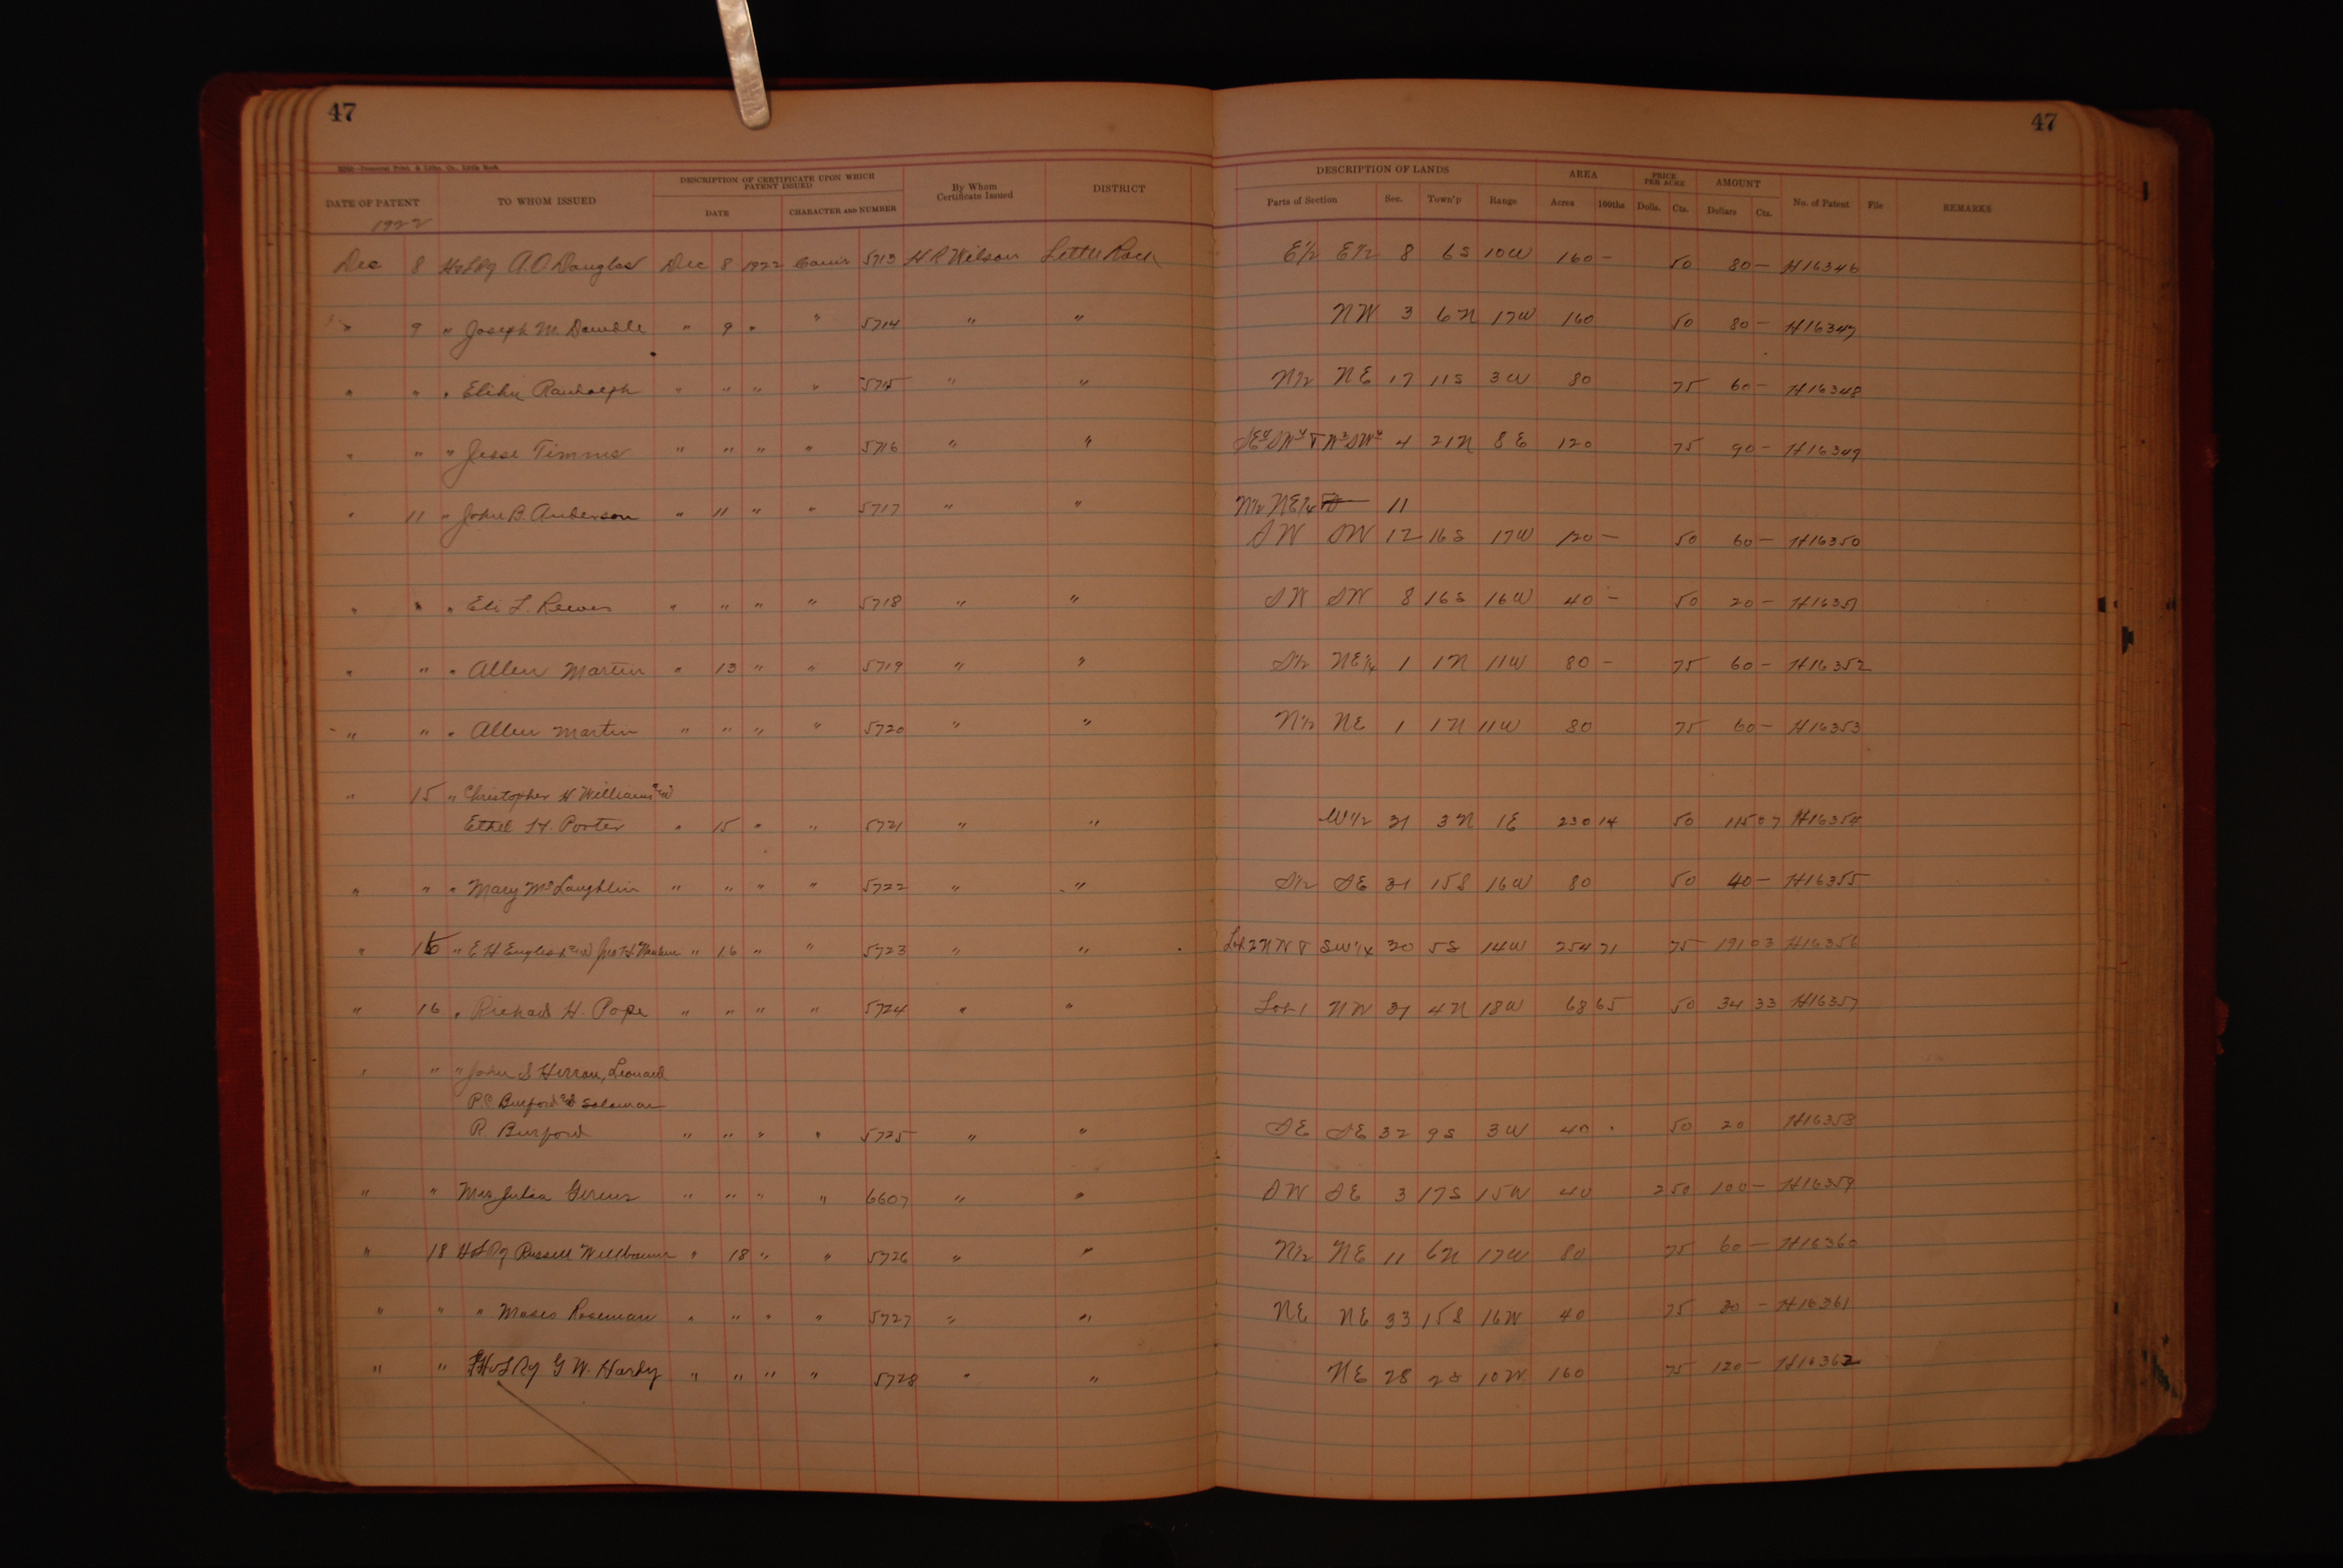 47
47
DATE OF PATENT TO WHOM ISSUED DESCRIPTION OF CERTIFICATE UPON WHICH PATENT ISSUED By Whom Certificate Issued DISTRICT DESCRIPTION OF LANDS AREA PRICE PER ACRE AMOUNT No. of Patent File REMARKS
1922 DATE CHARACTER AND NUMBER Parts of Section Sec. Town'p Range Acres 100ths Dolls. Cts. Dollars Cts.
Dec 8 A.O. Douglas Dec 8 1922 5713 H R Wilson Little Rock E½ E½ 8 6S 10W 160 – 50 80 – H16346
" 9 " Joseph M. " 9 " " 5714 " " NW 3 6N 17W 160 50 80 – H16347
" " " Elihu Randolph " " " " 5715 " " N½ NE 17 11S 3W 80 75 60 – H16348
" " " Jesse Timms " " " " 5716 " " 4 21N 8E 120 75 90 – H16349
" 11 " John B. Anderson " 11 " " 5717 " " N½ NE¼ 11
SW SW 12 16S 17W 120 – 50 60 – H16350
" " " Eli L. Reeves " " " " 5718 " " SW SW 8 16S 16W 40 – 50 20 – H16351
" " " Allen Martin " 13 " " 5719 " " S½ NE¼ 1 1N 11W 80 – 75 60 – H16352
" " " Allen Martin " " " " 5720 " " N½ NE 1 1N 11W 80 75 60 – H16353
" 15 " Christopher W Williams and
Ethel H. Porter " 15 " " 5721 " " W½ 31 3N 1E 230 14 50 115 07 H16354
" " " Mary McLaughlin " " " " 5722 " " S½ SE 31 15S 16W 80 50 40 – H16355
" 16 " E H English and " 16 " " 5723 " " Lot 2 NW & SW¼ 30 5S 14W 254 71 75 191 03 H16356
" 16 " Richard H. Pope " " " " 5724 " " Lot 1 NW 31 4N 18W 68 65 50 34 33 H16357
" " " John S Herron, Leonard
P.C. Burford and Solomon
R. Burford " " " " 5725 " " SE SE 32 9S 3W 40 50 20 H16358
" " Mrs Julia " " " " 6607 " " SW SE 3 17S 15W 40 2 50 100 – H16359
" 18 Russell " 18 " " 5726 " " N½ NE 11 6N 17W 80 75 60 – H16360
" " " Moses Roseman " " " " 5727 " " NE NE 33 15S 16W 40 75 30 – H16361
" " G W. Hardy " " " " 5728 " " NE 28 2S 10W 160 75 120 – H16362